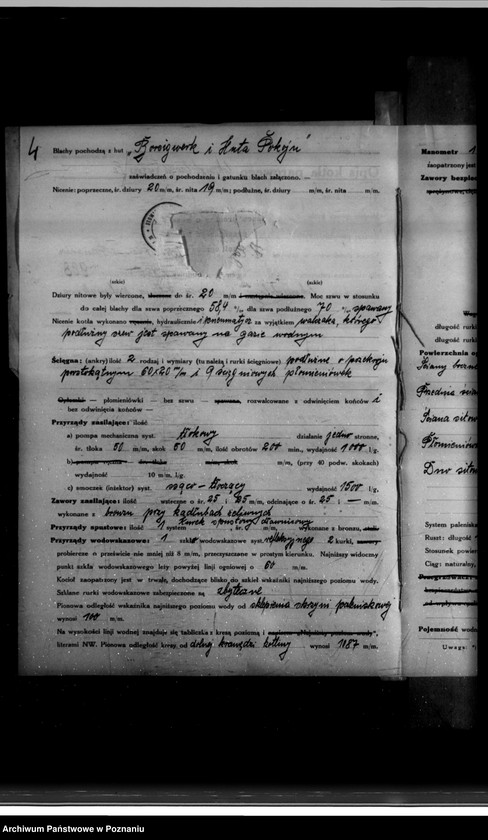 4
Blachy pochodzą z hut „Borsigwerk i Huta Pokój"
zaświadczeń o pochodzeniu i gatunku blach załączono. —
Nicenie: poprzeczne, śr. dziury 20 m/m, śr. nita 19 m/m; podłużne, śr. dziury m/m, śr. nita m/m.
(szkic) (szkic)
Dziury nitowe były wiercone, do śr. 20 m/m Moc szwu w stosunku
do całej blachy dla szwu poprzecznego 58,4 %, dla szwu podłużnego 70 % spawany
Nicenie kotła wykonano hydraulicznie i pneumatycz za wyjątkiem walczaka, którego
podłużny szew jest spawany na gazie wodnym
Ściągna: (ankry) ilość 2 rodzaj i wymiary (tu należą i rurki ściągniowe) podłużne o przekroju
prostokątnym 60x20 m/m i 9 płomieniówek
— płomieniówki — bez szwu — rozwalcowane z odwinięciem końców i
bez odwinięcia końców —
Przyrządy zasilające: ilość
a) pompa mechaniczna syst. tłokowy działanie jedno stronne,
śr. tłoka 50 m/m, skok 50 m/m, ilość obrotów 200 min., wydajność 1000 l/g.
b) m/m, (przy 40 podw. skokach)
wydajność 10 m/m. l/g.
c) smoczek (inżektor) syst. ssąco-tłoczący wydajność 1500 l/g.
Zawory zasilające: ilość wsteczne o śr. 25 i 25 m/m, odcinające o śr. 25 i — m/m,
wykonane z bronzu przy kadłubach żeliwnych
Przyrządy spustowe: ilość 1 system kurek spustowy dławnicowy śr. m/m, wykonane z bronzu,
Przyrządy wodowskazowe: 1 szkło wodowskazowe syst. refleksyjnego 2 kurki,
probiercze o prześwicie nie mniej niż 8 m/m, przeczyszczane w prostym kierunku. Najniższy widoczny
punkt szkła wodowskazowego leży powyżej linji ogniowej o 60 m/m.
Kocioł zaopatrzony jest w trwałe, dochodzące blisko do szkieł wskaźniki najniższego poziomu wody.
Szklane rurki wodowskazowe zabezpieczone są zbyteczne
Pionowa odległość wskaźnika najniższego poziomu wody od sklepienia skrzyni paleniskowej
wynosi 100 m/m.
Na wysokości linji wodnej znajduje się tabliczka z kresą poziomą i
literami NW. Pionowa odległość kresy od dolnej krawędzi kotliny wynosi 1187 m/m.
Manometr 1
zaopatrzony jest
Zawory bezpiec
długość rurki
długość rurki
Powierzchnia o
Ściany boczne
Przednia
Ściana sitow
Płomieniówe
Dno sitow
System paleniska
Ruszt: długość
Stosunek powier
Ciąg: naturalny,
Pojemność wodn
Uwaga:
Archiwum Państwowe w Poznaniu